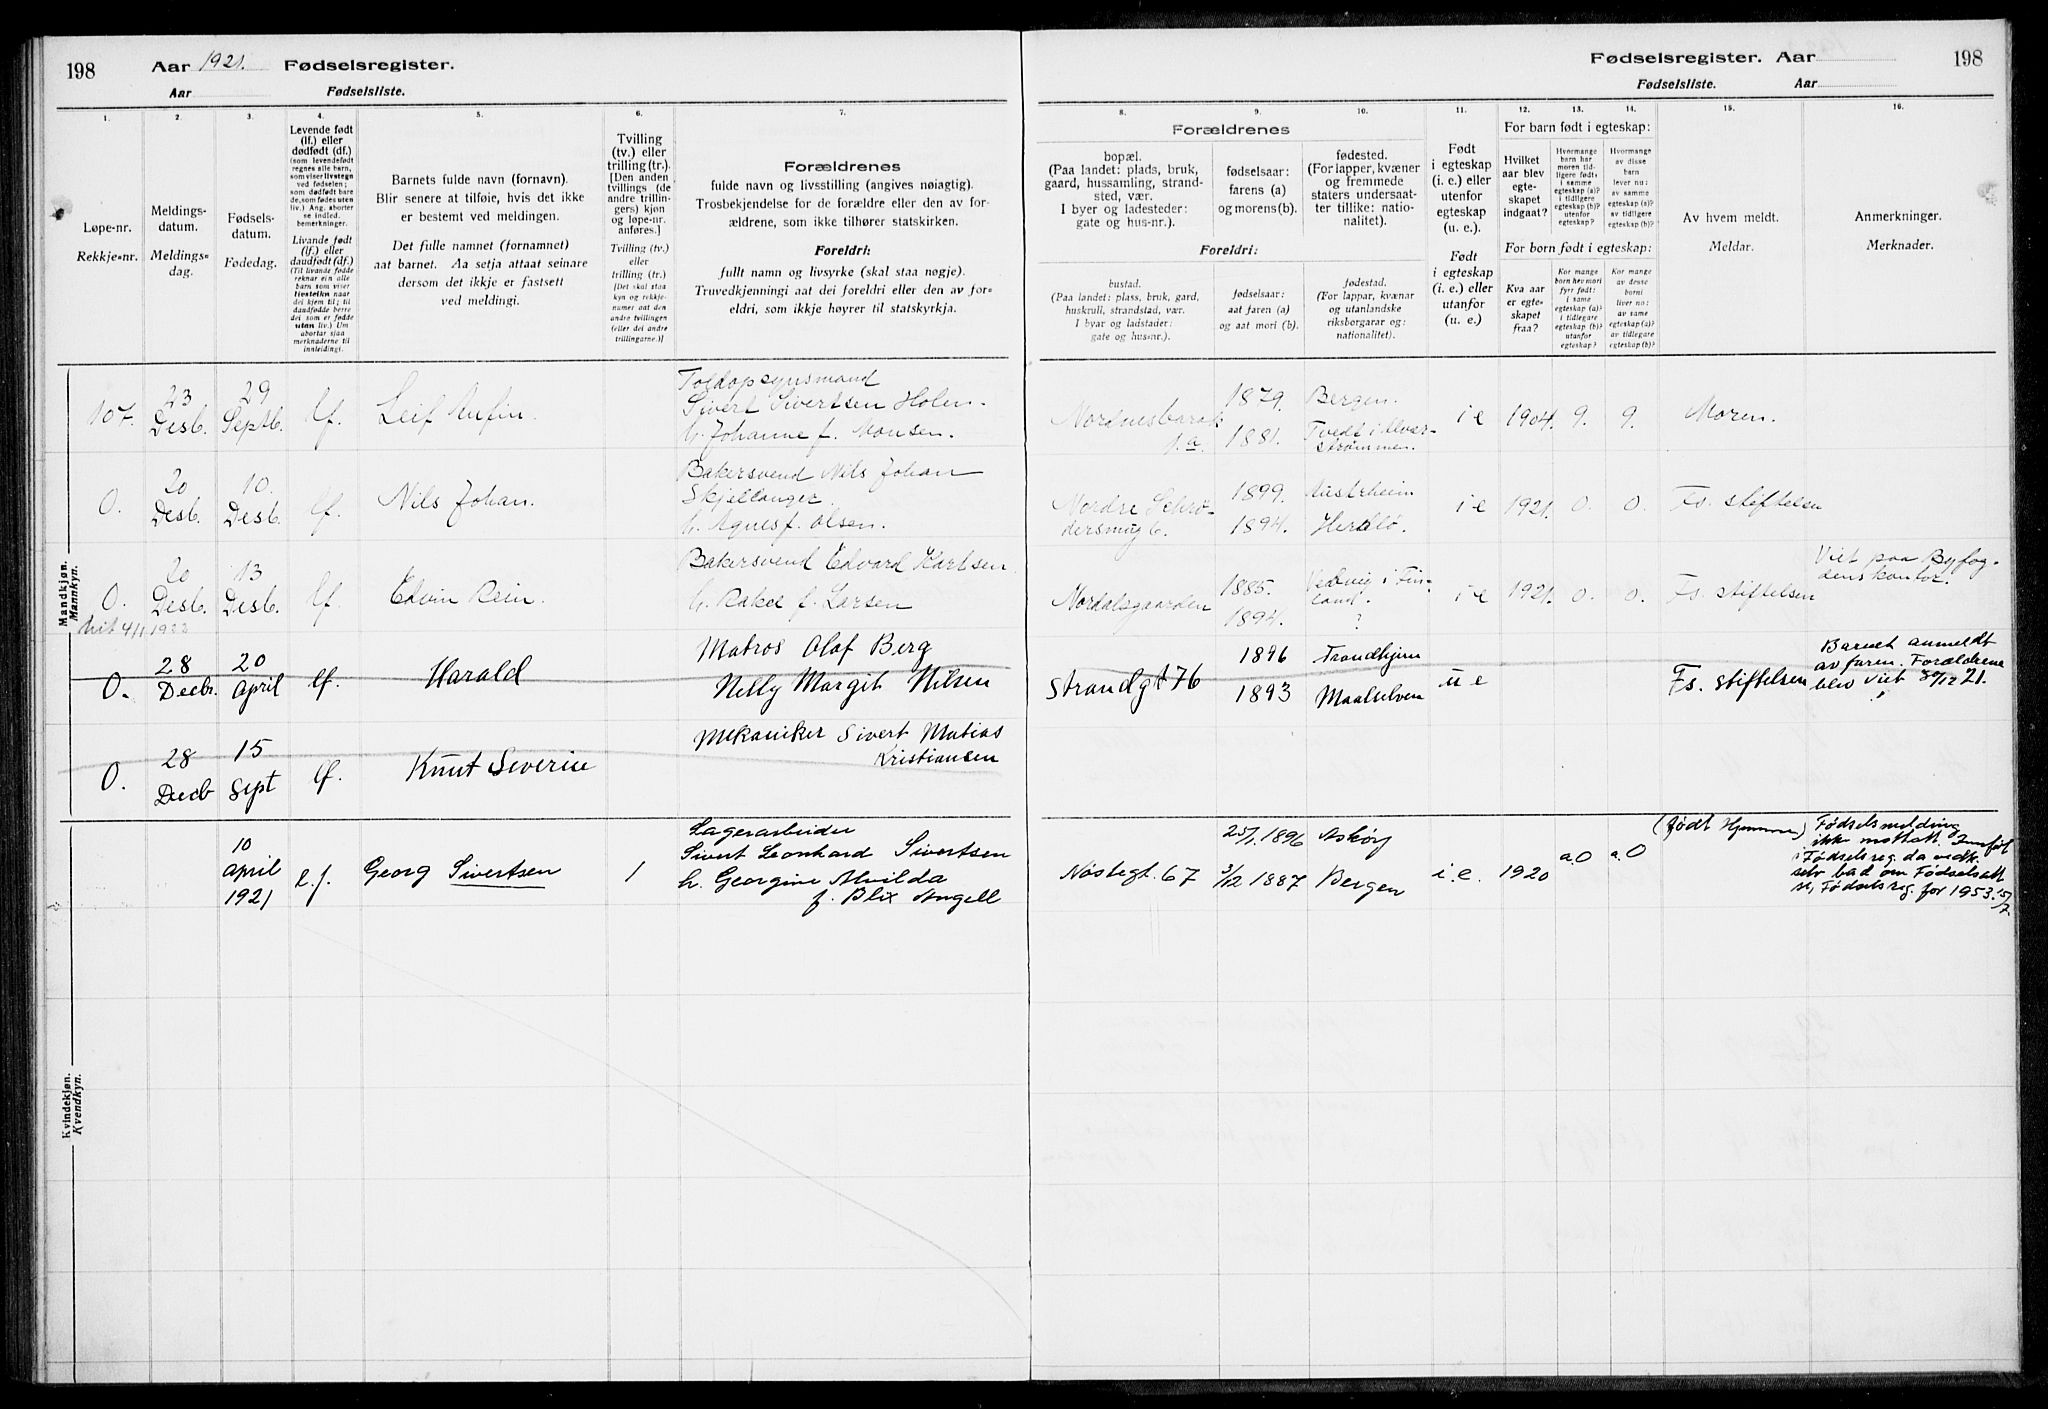 198
Aar 1921. Fødselsregister.
Aar Fødselsliste.
Fødselsregister. Aar
198
Fødselsliste. Aar
1.
2.
3.
4.
5.
6.
7.
8.
9.
10.
11.
12.
13.
14.
15.
16.
Løpe-nr.
Rekkje=nr.
Meldings-
datum.
Meldings=
dag.
Fødsels-
datum.
Fødedag.
Levende født
(lf.) eller
dødfødt (df.)
(som levendefødt
regnes alle barn,
som viser livstegn
ved fødselen;
som dødfødt bare
de, som fødes uten
liv.) Ang. aborter
se indled.
bemerkninger.
Livande født
(lf.) eller
daudfødt (df.)
(Til livande fødde
reknar ein alle
barn som viser
livsteikn naar
dei kjem til; til
daudfødde berre
dei som er fødde
utan liv.) Um
abortar sjaa
merknaderne til
innleidingi.
Barnets fulde navn (fornavn).
Blir senere at tilføie, hvis det ikke
er bestemt ved meldingen.
Det fulle namnet (fornamnet)
aat barnet. Aa setja attaat seinare
dersom det ikkje er fastsett
ved meldingi.
Tvilling
(tv.) eller
trilling (tr.).
[Den anden
tvillings (de
andre trillin-
gers) kjøn
og løpe-nr.
anføres.]
Tvilling (tv.)
eller
trilling (tr.)
[Det skal staa
kyn og rekkje-
numer aat den
andre tvillingen
(eller dei andre
trillingarne.)]
Forældrenes
fulde navn og livsstilling (angives nøiagtig).
Trosbekjendelse for de forældre eller den av for-
ældrene, som ikke tilhører statskirken.
Foreldri:
fullt namn og livsyrke (skal staa nøgje).
Truvedkjenningi aat dei foreldri eller den av for-
eldri, som ikkje høyrer til statskyrkja.
Forældrenes
bopæl.
(Paa landet: plads, bruk,
gaard, hussamling, strand-
sted, vær.
I byer og ladesteder:
gate og hus-nr.).
fødselsaar:
farens (a)
og morens (b).
fødested.
(For lapper, kvæner
og fremmede
staters undersaat-
ter tillike: natio-
nalitet).
Foreldri:
bustad.
(Paa landet: plass, bruk, gard,
huskrull, strandstad, vær.
I byar og ladstader:
gate og hus-nr.).
fødselsaar:
aat faren (a)
og aat mori (b).
fødestad.
(For lappar, kvænar
og utanlandske
riksborgarar og:
nationalitet).
Født
i egteskap
(i. e.) eller
utenfor
egteskap
(u. e.).
Født
i egteskap
(i. e.) eller
utanfor
(u. e.).
For barn født i egteskap:
Hvilket
aar blev
egte-
skapet
indgaat?
Hvormange
barn har
moren tid-
ligere født:
i samme
egteskap (a)?
i tidligere
egteskap (b)?
utenfor
egteskap?
Hvormange
av disse
barn
lever nu:
av samme
egteskap (a)?
av tidligere
egteskap (b)?
For born født i egteskap:
Kva aar
er egte-
skapet
fraa?
Kor mange
born hev mori
fyrr født:
i same
egteskap (a)?
i tidlegare
egteskap (b)?
utanfor
egteskap?
Kor mange
av desse
borni
liver no:
av same
egteskap (a)?
av tidlegare
egteskap (b)?
Av hvem meldt.
Meldar.
Anmerkninger.
Merknader.
Mandkjøn.
Mannkyn.
107. 23 Desb. 29 Septb. lf. Leif Arfin.
Toldopsynsmand
Sivert Sivertsen Holen.
h. Johanne f. Monsen.
Nordnesbarak 1. a.
1879. Bergen.
1881. Tvedt i Alver-
strømmen.
i e 1904. 9. 9. Moren.
0. 20 Desb. 10. Desb. lf. Nils Johan.
Bakersvend Nils Johan
Skjellanger
h. Agnes f. Olsen.
Nordre Schrø-
dersmug 6.
1899. Austrheim
1894. Herdlø.
i e 1921. 0. 0. Fs. stiftelsen
0. 20 Desb. 13 Desb. lf. Edvin Rein.
Bakersvend Edvard Karlsen
h. Rakel f. Larsen
Nordalsgaarden
1885. i Fin-
land.
1894. ?
i e 1921. 0. 0. Fs. stiftelsen
Viet paa Byfog-
dens kontor.
4/1 1922
0. 28 Decbr. 20 April lf. Harald
Matros Olaf Berg
Nelly Margit Nilsen
Strandgt 76
1896 Trondhjem
1893 Maalselven
u e
Fs. stiftelsen
Barnet anmeldt
av faren. Forældrene
blev viet 30/12 21.
0. 28 Decb 15 Sept lf. Knut Severin
Mekaniker Sivert Matias
Kristiansen
10 april 1921 l.f. Georg Sivertsen 1
Lagerarbeider
Sivert Leonhard Sivertsen
h. Georgine Alvilda
f. Blix Angell
Nøstegt. 67
25/1. 1896 Askøy
3/12 1887 Bergen
i. e. 1920 a 0 a. 0
(Født Hjemme)
Fødselsmelding
ikke mottatt. Innført
i Fødselsreg. da vedk.
selv bad om Fødselsatt
Fødselsreg. for 1953. 15/7.
Kvindekjøn.
Kvendkyn.